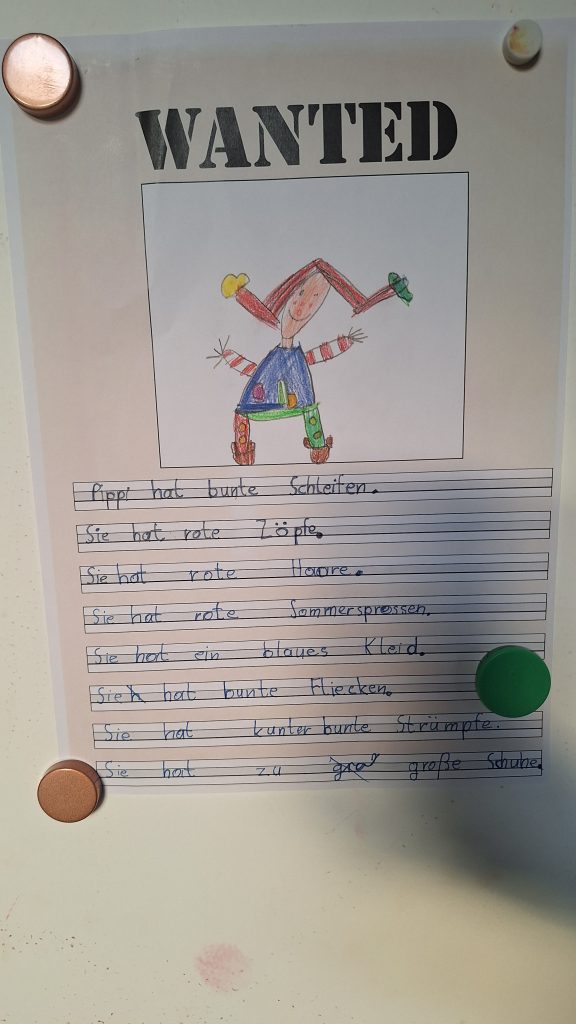 WANTED
Pippi hat bunte Schleifen.
Sie hat rote Zöpfe.
Sie hat rote Haare.
Sie hat rote Sommersprossen.
Sie hat ein blaues Kleid.
Sie hat bunte Fliecken.
Sie hat kunter bunte Strümpfe.
Sie hat zu große Schuhe.